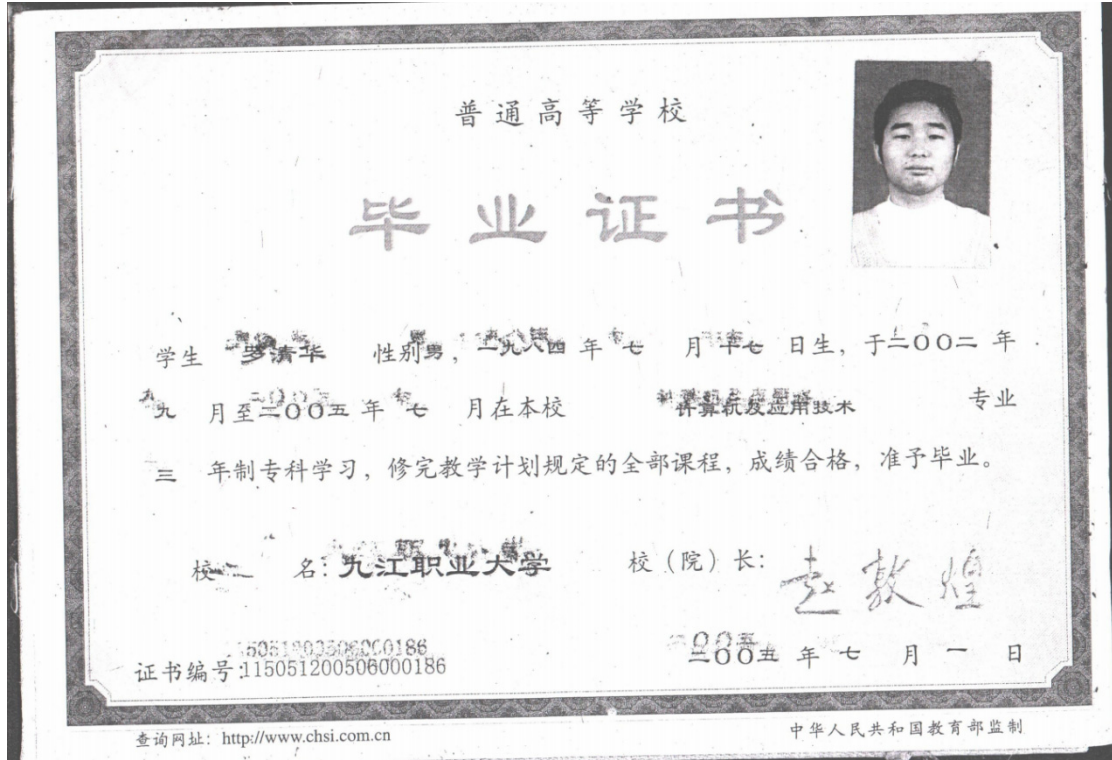 普通高等学校
毕业证书
学生 罗清华 性别 男，一九八四 年 七 月 十七 日生，于二〇〇二 年
九 月至二〇〇五 年 七 月在本校 计算机及应用技术 专业
三 年制专科学习，修完教学计划规定的全部课程，成绩合格，准予毕业。
校 名：九江职业大学 校（院）长：赵敦煌
二〇〇五 年 七 月 一 日
证书编号：115051200506000186
查询网址：http://www.chsi.com.cn 中华人民共和国教育部监制